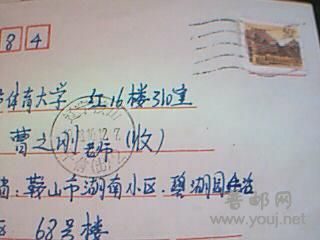 84
体育大学 红16楼310室
曹之刚老师(收)
鞍山市湖南小区·碧湖园
区 68号楼
普邮网
www.youj.net